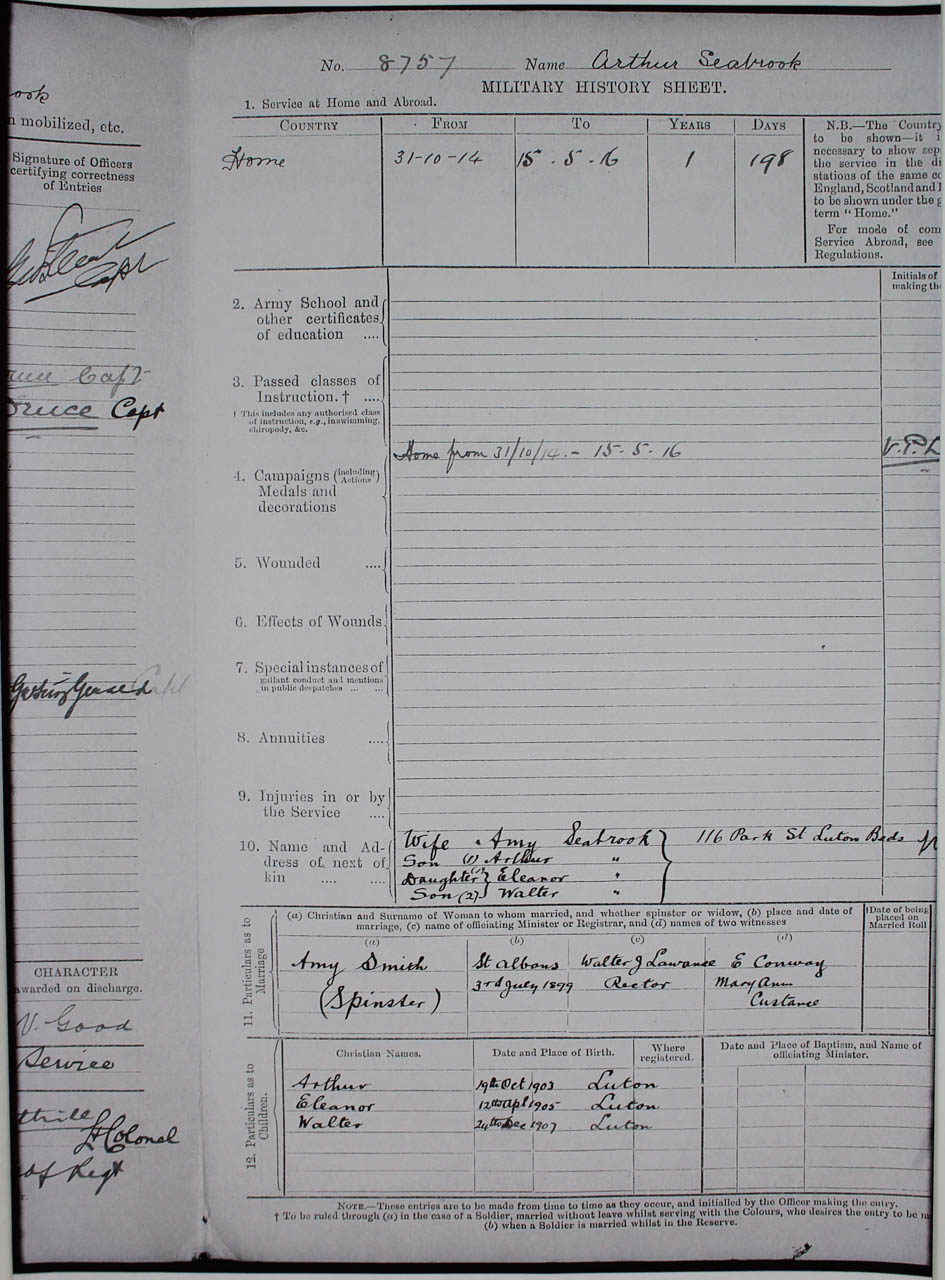 ook
n mobilized, etc.
Signature of Officers
certifying correctness
of Entries
Capt
Capt
Capt
Capt
CHARACTER
awarded on discharge.
V. Good
Service
Lt Colonel
of Regt
No. 8757 Name Arthur Seabrook
MILITARY HISTORY SHEET.
1. Service at Home and Abroad.
COUNTRY FROM TO YEARS DAYS
Home 31-10-14 15.5.16 1 198
N.B.—The Country
to be shown—it i
necessary to show sep
the service in the di
stations of the same co
England, Scotland and I
to be shown under the g
term "Home."
For mode of com
Service Abroad, see
Regulations.
Initials of
making the
2. Army School and
other certificates
of education ....
3. Passed classes of
Instruction. † ....
† This includes any authorised class
of instruction, e.g., in swimming,
chiropody, &c.
Home from 31/10/14.- 15-5-16 V.P.L
4. Campaigns (including Actions)
Medals and
decorations
5. Wounded ....
6. Effects of Wounds
7. Special instances of
gallant conduct and mentions
in public despatches ... ...
8. Annuities ....
9. Injuries in or by
the Service ....
10. Name and Ad-
dress of next of
kin .... ....
Wife Amy Seabrook } 116 Park St Luton Beds
Son (1) Arthur "
Daughter (1) Eleanor "
Son (2) Walter "
11. Particulars as to
Marriage
(a) Christian and Surname of Woman to whom married, and whether spinster or widow, (b) place and date of
marriage, (c) name of officiating Minister or Registrar, and (d) names of two witnesses
†Date of being
placed on
Married Roll
(a) (b) (c) (d)
Amy Smith St Albans Walter J Lawrance E Conway
(Spinster) 3rd July 1899 Rector Mary Ann
Custance
12. Particulars as to
Children.
Christian Names. Date and Place of Birth. Where
registered. Date and Place of Baptism, and Name of
officiating Minister.
Arthur 19th Oct 1903 Luton
Eleanor 12th Apl 1905 Luton
Walter 24th Dec 1907 Luton
NOTE.—These entries are to be made from time to time as they occur, and initialled by the Officer making the entry.
† To be ruled through (a) in the case of a Soldier, married without leave whilst serving with the Colours, who desires the entry to be m
(b) when a Soldier is married whilst in the Reserve.